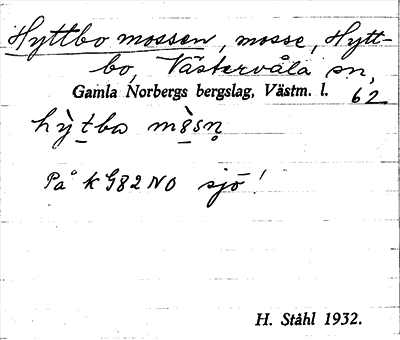 Hyttbo mossen, mosse, Hytt-
bo, Västervåla sn,
Gamla Norbergs bergslag, Västm. l.
62
hỳt̲ba mo̲̊̀sn̥
På KG82NO sjö!
H. Ståhl 1932.